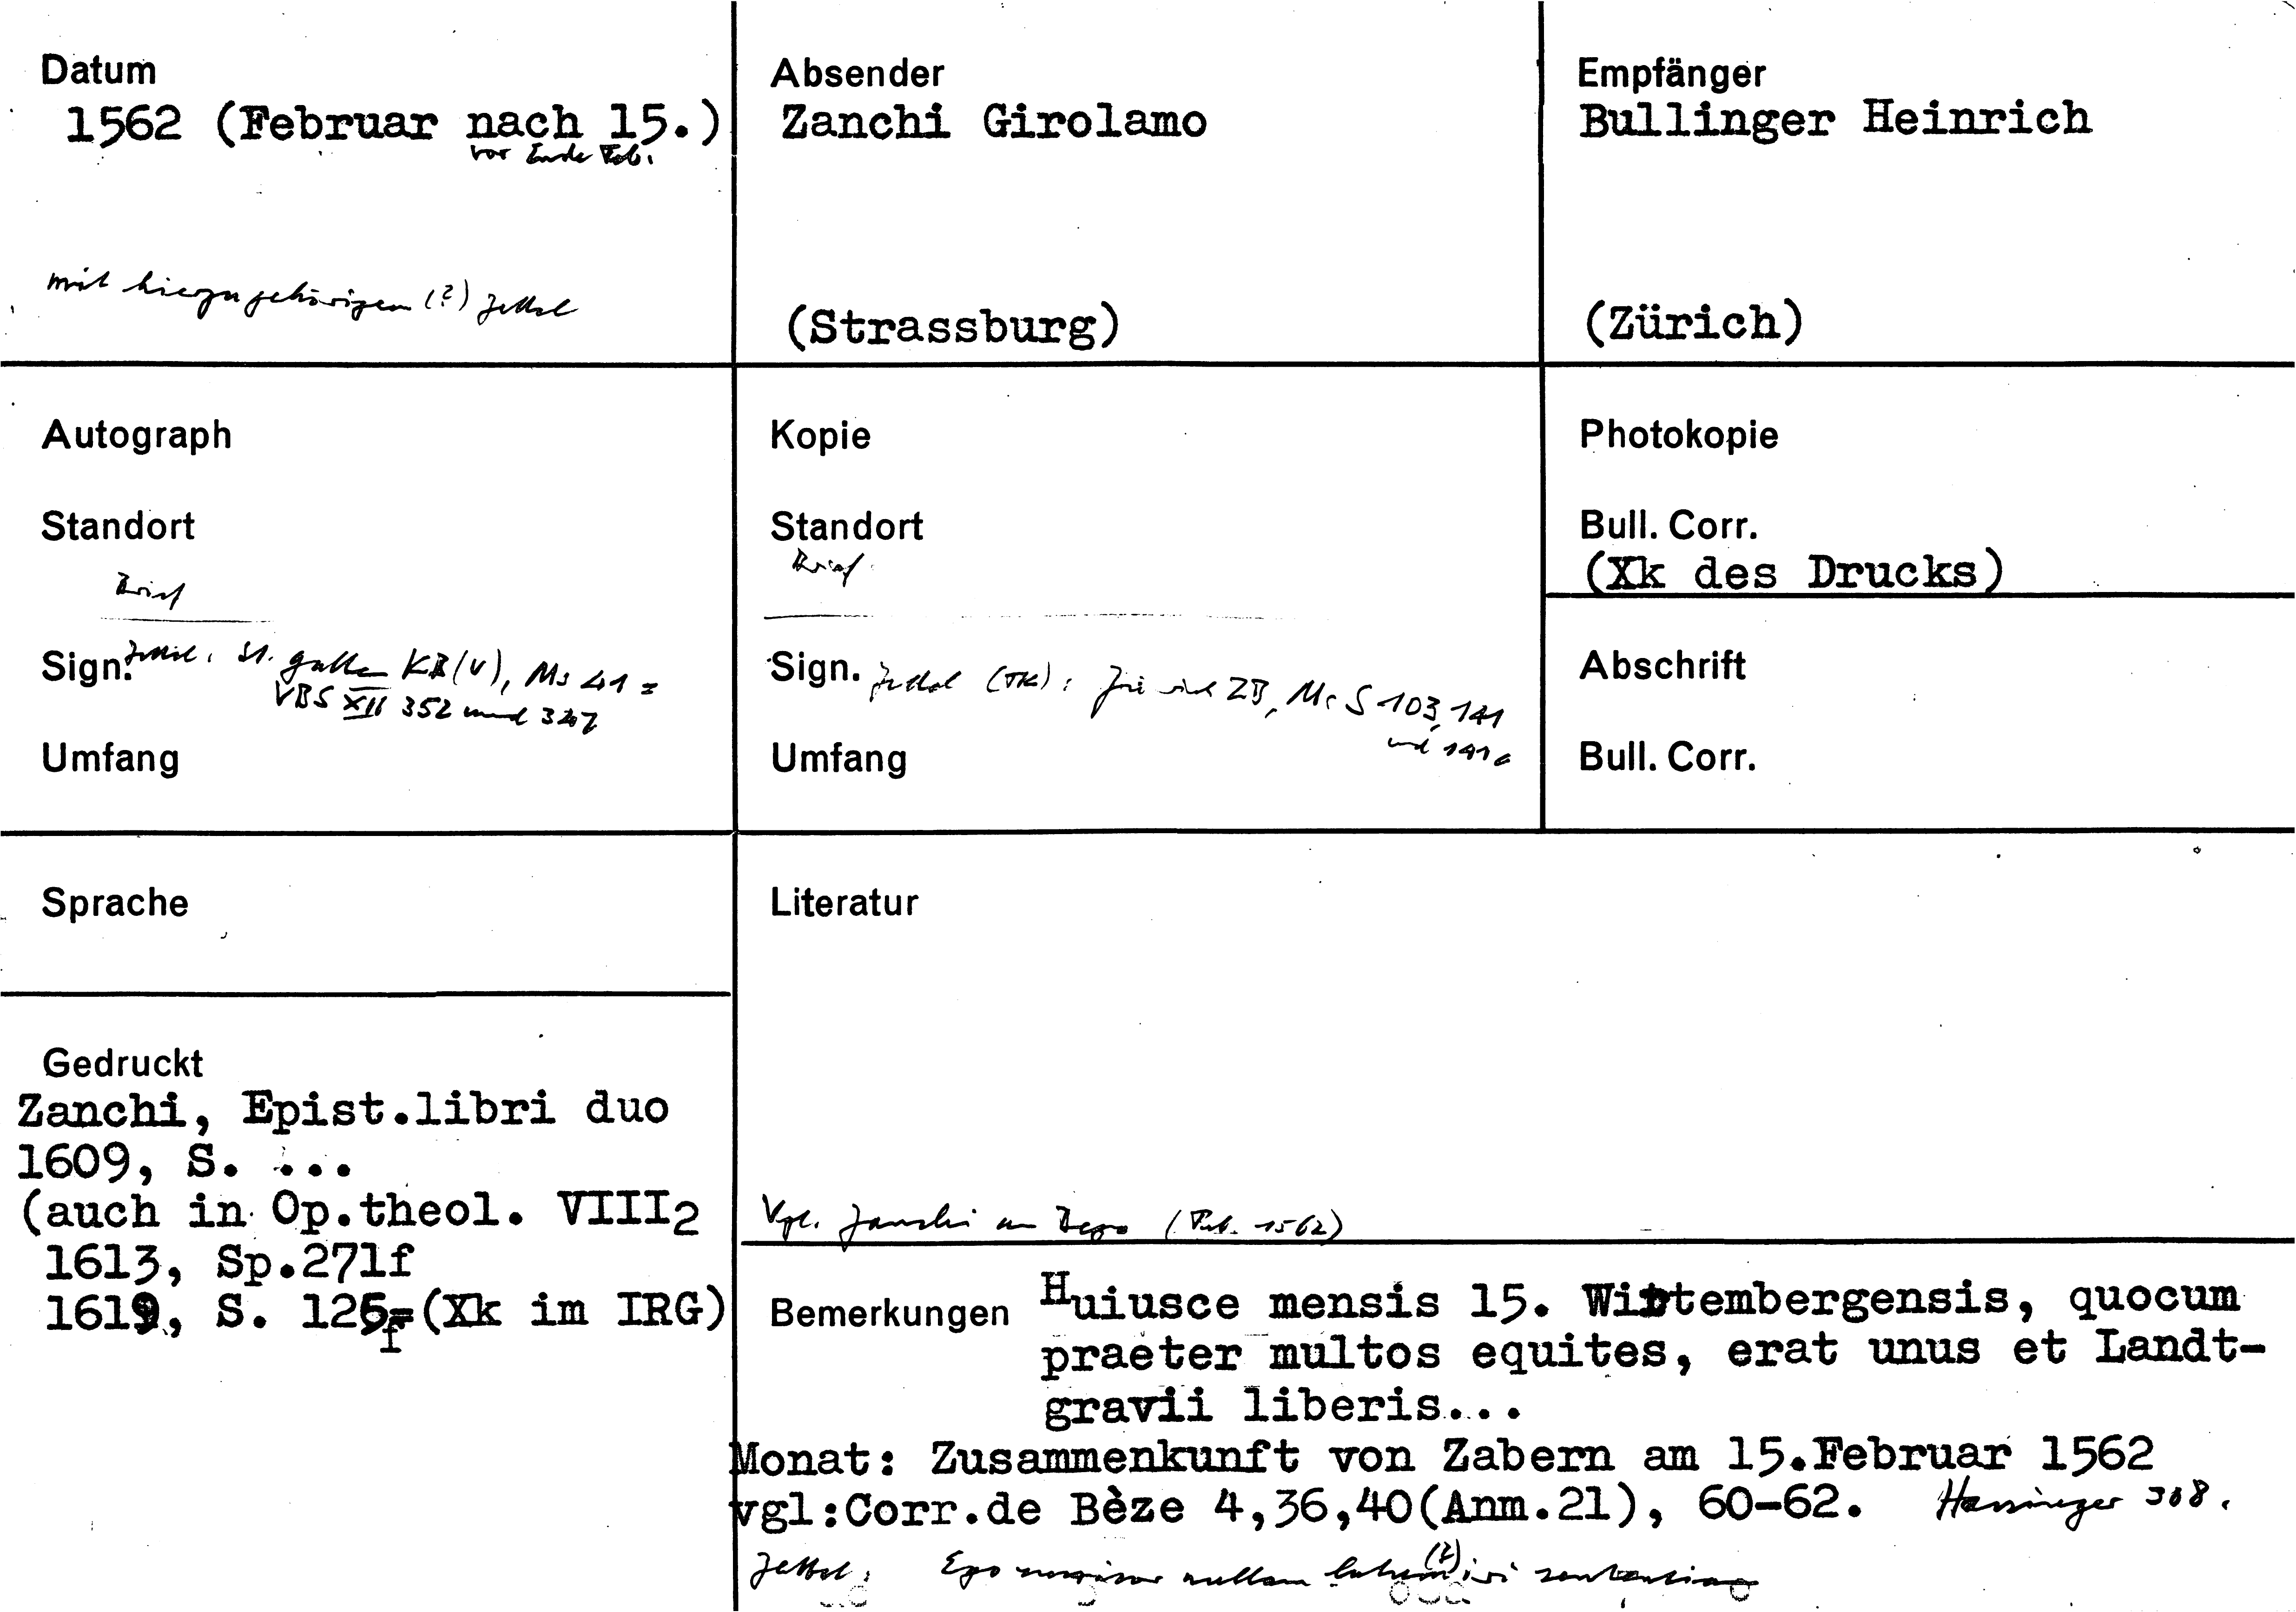 Datum
1562 (Februar nach 15.)
vor Ende Feb.
mit hierzugehörigem (?) Zettel
Absender
Zanchi Girolamo
(Strassburg)
Empfänger
Bullinger Heinrich
(Zürich)
Autograph
Standort
Brief
Sign. Zettel: St. Gallen KB(V), Ms 41 =
VBS XII 352 und
Umfang
Kopie
Standort
Brief
Sign. Zettel (TK): Zürich ZB, Ms S 103, 141
und 141a
Umfang
Photokopie
Bull. Corr.
(Xk des Drucks)
Abschrift
Bull. Corr.
Sprache
Gedruckt
Zanchi, Epist.libri duo
1609, S. ...
(auch in Op.theol. VIII2
1613, Sp.271f
1619, S. 125f (Xk im IRG)
Literatur
Vgl. Zanchi an Beza (Feb. 1562)
Bemerkungen Huiusce mensis 15. Wirtembergensis, quocum
praeter multos equites, erat unus et Landt-
gravii liberis...
Monat: Zusammenkunft von Zabern am 15.Februar 1562
vgl:Corr.de Bèze 4,36,40(Anm.21), 60-62. 308.
Zettel: Ego nullam (?)